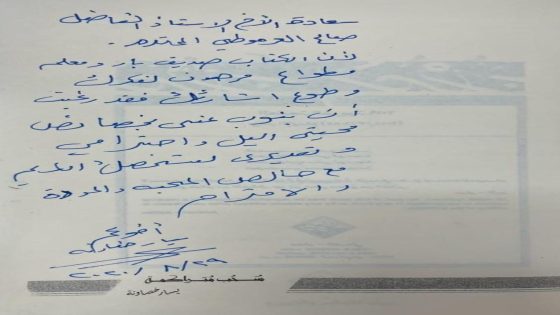 سعادة الأخ الاستاذ الفاضل
صالح العرموطي المحترم .
لأن الكتاب صديق بار ومعلم
مطواع مرهون لفكرك
وطوع اشارتك فقد رغبت
أن ينوب عني بخصائص
محبتي إليك واحترامي
وتقديري لشخصك الكريم
مع خالص المحبة والمودة
والاحترام
أخوكم
يسار خصاونة
٢٠٢٠/٨/٢٩
يسار خصاونة